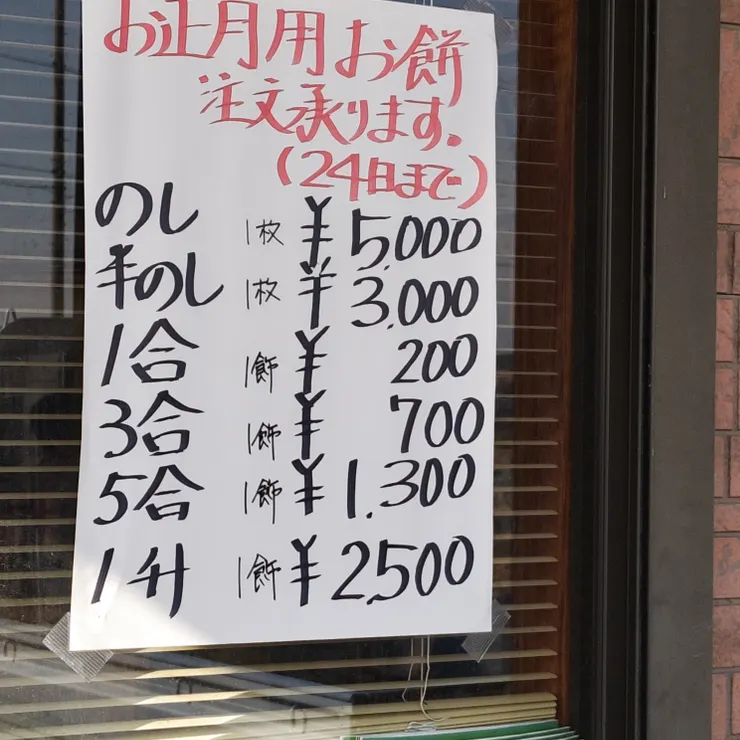 お正月用お餅
注文承ります.
(24日まで)
のし 1枚 ¥5,000
半のし 1枚 ¥3,000
1合 1飾 ¥200
3合 1飾 ¥700
5合 1飾 ¥1,300
1升 1飾 ¥2,500